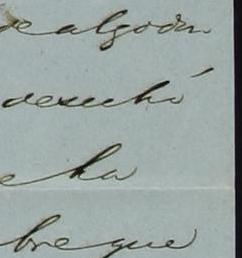 de algodon
desechó
e ha
bre que